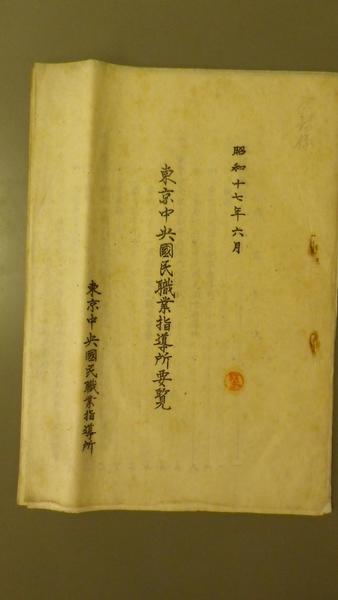 昭和十七年六月
東京中央國民職業指導所要覽
東京中央國民職業指導所